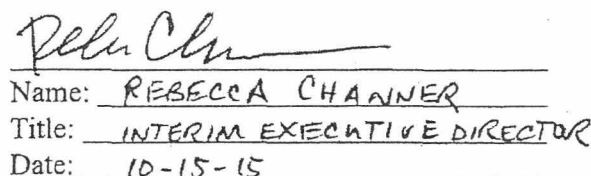 Name: REBECCA CHANNER
Title: INTERIM EXECUTIVE DIRECTOR
Date: 10-15-15